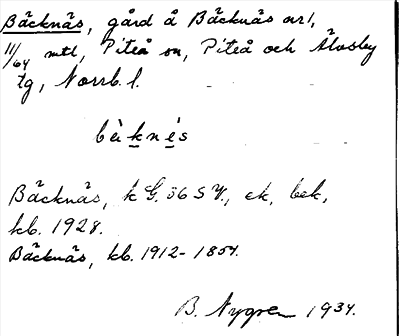 Bäcknäs, gård å Bäcknäs nr 1,
11/64 mtl, Piteå sn, Piteå och Älvsby
tg, Norrb. l.
bèknés
Bäcknäs, k G. 56 S V., ek, bek,
kb. 1928.
Bäcknäs, kb. 1912-1854.
B. Nygren 1934.